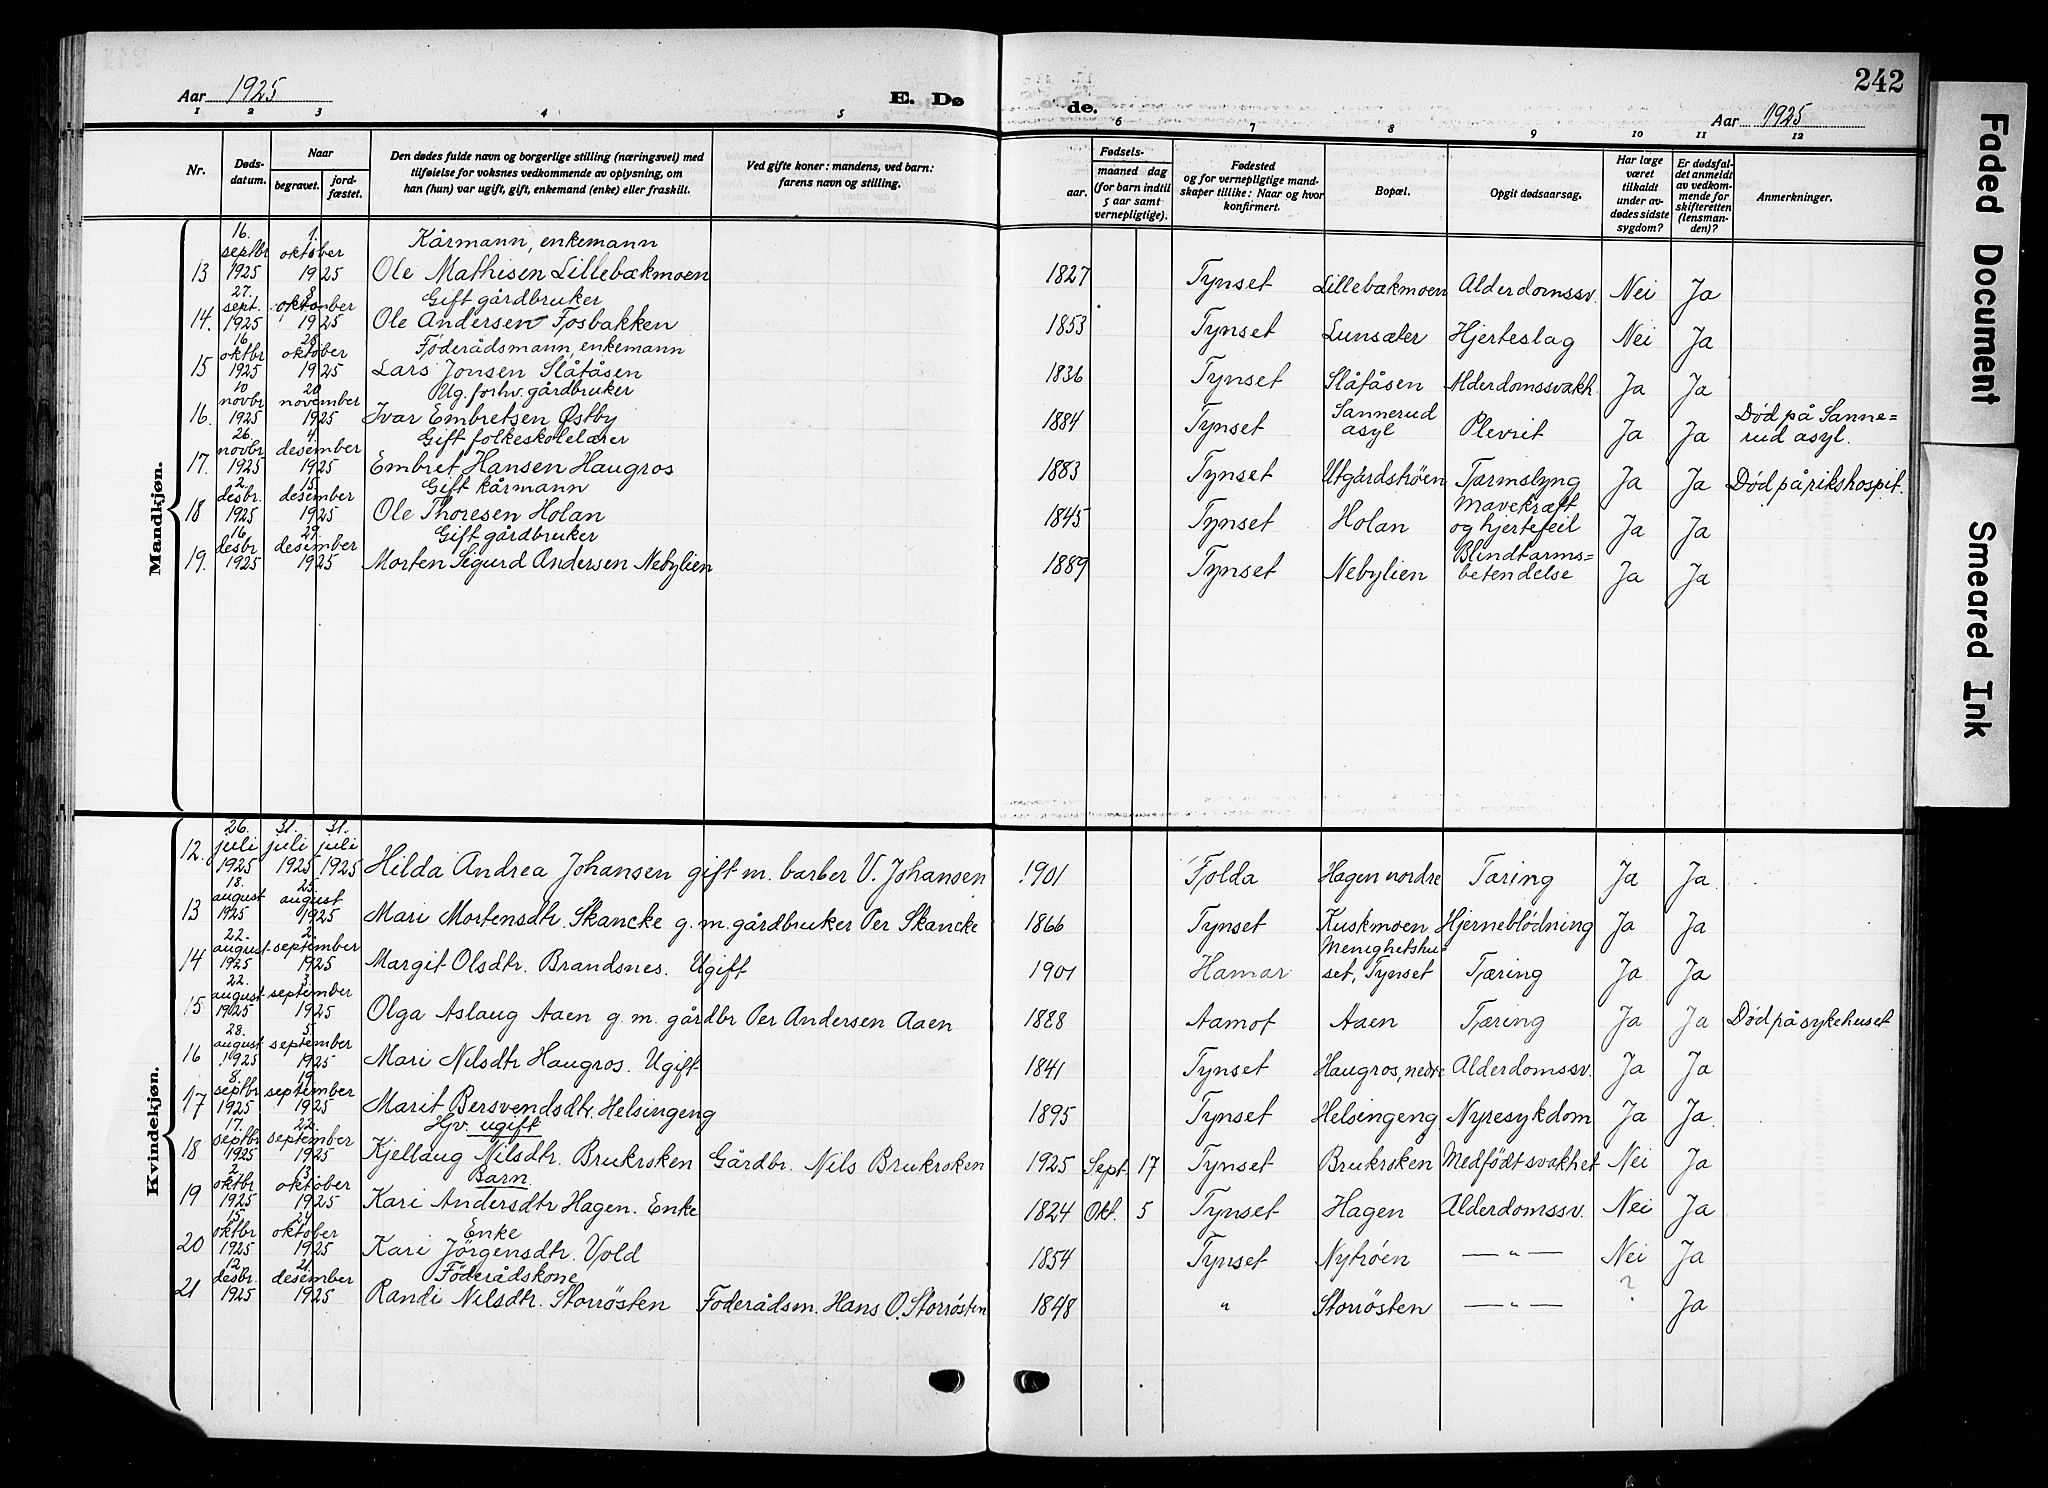 242
Aar 1925
E. Døde.
Aar 1925
1 2 3 4 5 6 7 8 9 10 11 12
Nr.
Dødsdatum.
Naar
begravet.
jordfæstet.
Den dødes fulde navn og borgerlige stilling (næringsvei) med
tilføielse for voksnes vedkommende av oplysning, om
han (hun) var ugift, gift, enkemand (enke) eller fraskilt.
Ved gifte koner: mandens, ved barn:
farens navn og stilling.
Fødsels-
aar.
maaned dag
(for barn indtil
5 aar samt
vernepligtige).
Fødested
og for vernepligtige mand-
skaper tillike: Naar og hvor
konfirmert.
Bopæl.
Opgit dødsaarsag.
Har læge
været
tilkaldt
under av-
dødes sidste
sygdom?
Er dødsfal-
det anmeldt
av vedkom-
mende for
skifteretten
(lensman-
den)?
Anmerkninger.
Mandkjøn.
16. 1. Kårmann, enkemann
septbr oktober
13 1925 1925 Ole Mathisen Lillebækmoen 1827 Tynset Lillebækmoen Alderdomssv. Nei Ja
27. 8. Gift gårdbruker
sept. oktober
14. 1925 1925 Ole Andersen Fosbakken 1853 Tynset Lunsæter Hjerteslag Nei Ja
16. 28. Føderådsmann, enkemann
oktbr oktober
15 1925 1925 Lars Jonsen Slåfåsen 1836 Tynset Slåfåsen Alderdomssvakh. Ja Ja
10 20 Ug. forhv. gårdbruker
novbr november
16. 1925 1925 Ivar Embretsen Østby 1884 Tynset Sannerud asyl Plevrit Ja Ja Død på Sanne=
rud asyl.
26. 4. Gift folkeskolelærer
novbr desember
17. 1925 1925 Embret Hansen Haugros 1883 Tynset Utgårdstrøen Tarmslyng Ja Ja Død på rikshospit.
2. 15. Gift kårmann
desbr. desember
18 1925 1925 Ole Thoresen Holan 1845 Tynset Holan Mavekræft
og hjertefeil Ja Ja
16 29. Gift gårdbruker
desbr. desember
19. 1925 1925 Morten Sigurd Andersen Nebylien 1889 Tynset Nebylien Blindtarms=
betendelse Ja Ja
Kvindekjøn.
26. 31. 31.
juli juli juli
12. 1925 1925 1925 Hilda Andrea Johansen gift m. barber V. Johansen 1901 Folda Hagen nordre Tæring Ja Ja
18. 25.
august august
13 1925 1925 Mari Mortensdtr Skancke g. m. gårdbruker Per Skancke 1866 Tynset Kuskmoen Hjerneblödning Ja Ja
22. 2.
august september
14 1925 1925 Margit Olsdtr. Brandsnes. Ugift 1901 Hamar Menighetshu
set, Tynset Tæring Ja Ja
22. 3.
august september
15 1925 1925 Olga Aslaug Aaen g. m. gårdbr Per Andersen Aaen 1888 Aamot Aaen Tæring Ja Ja Død på sykehuset
28. 5.
august september
16 1925 1925 Mari Nilsdtr Haugros. Ugift 1841 Tynset Haugros, nedre Alderdomssv. Ja Ja
8. 19
septbr september
17 1925 1925 Marit Bersvendsdtr. Helsingeng 1895 Tynset Helsingeng Nyresykdom Ja Ja
Hjv. ugift
17. 22.
septbr september
18 1925 1925 Kjellaug Nilsdtr. Brukroken Gårdbr. Nils Brukroken 1925 Sept. 17 Tynset Brukroken Medfödt svakhet Nei Ja
Barn.
2. 13.
oktbr oktober
19 1925 1925 Kari Andersdtr Hagen. Enke 1824 Okt. 5 Tynset Hagen Alderdomssv. Nei Ja
15. 24 Enke
oktbr oktober
20 1925 1925 Kari Jörgensdtr. Vold 1854 Tynset Nytröen — „ — Nei Ja
12. 21. Föderådskone
desbr. desember
21 1925 1925 Randi Nilsdtr. Storrösten Foderådsm. Hans O. Storrösten 1848 „ Storrösten — „ — ? Ja
Faded Document
Smeared Ink